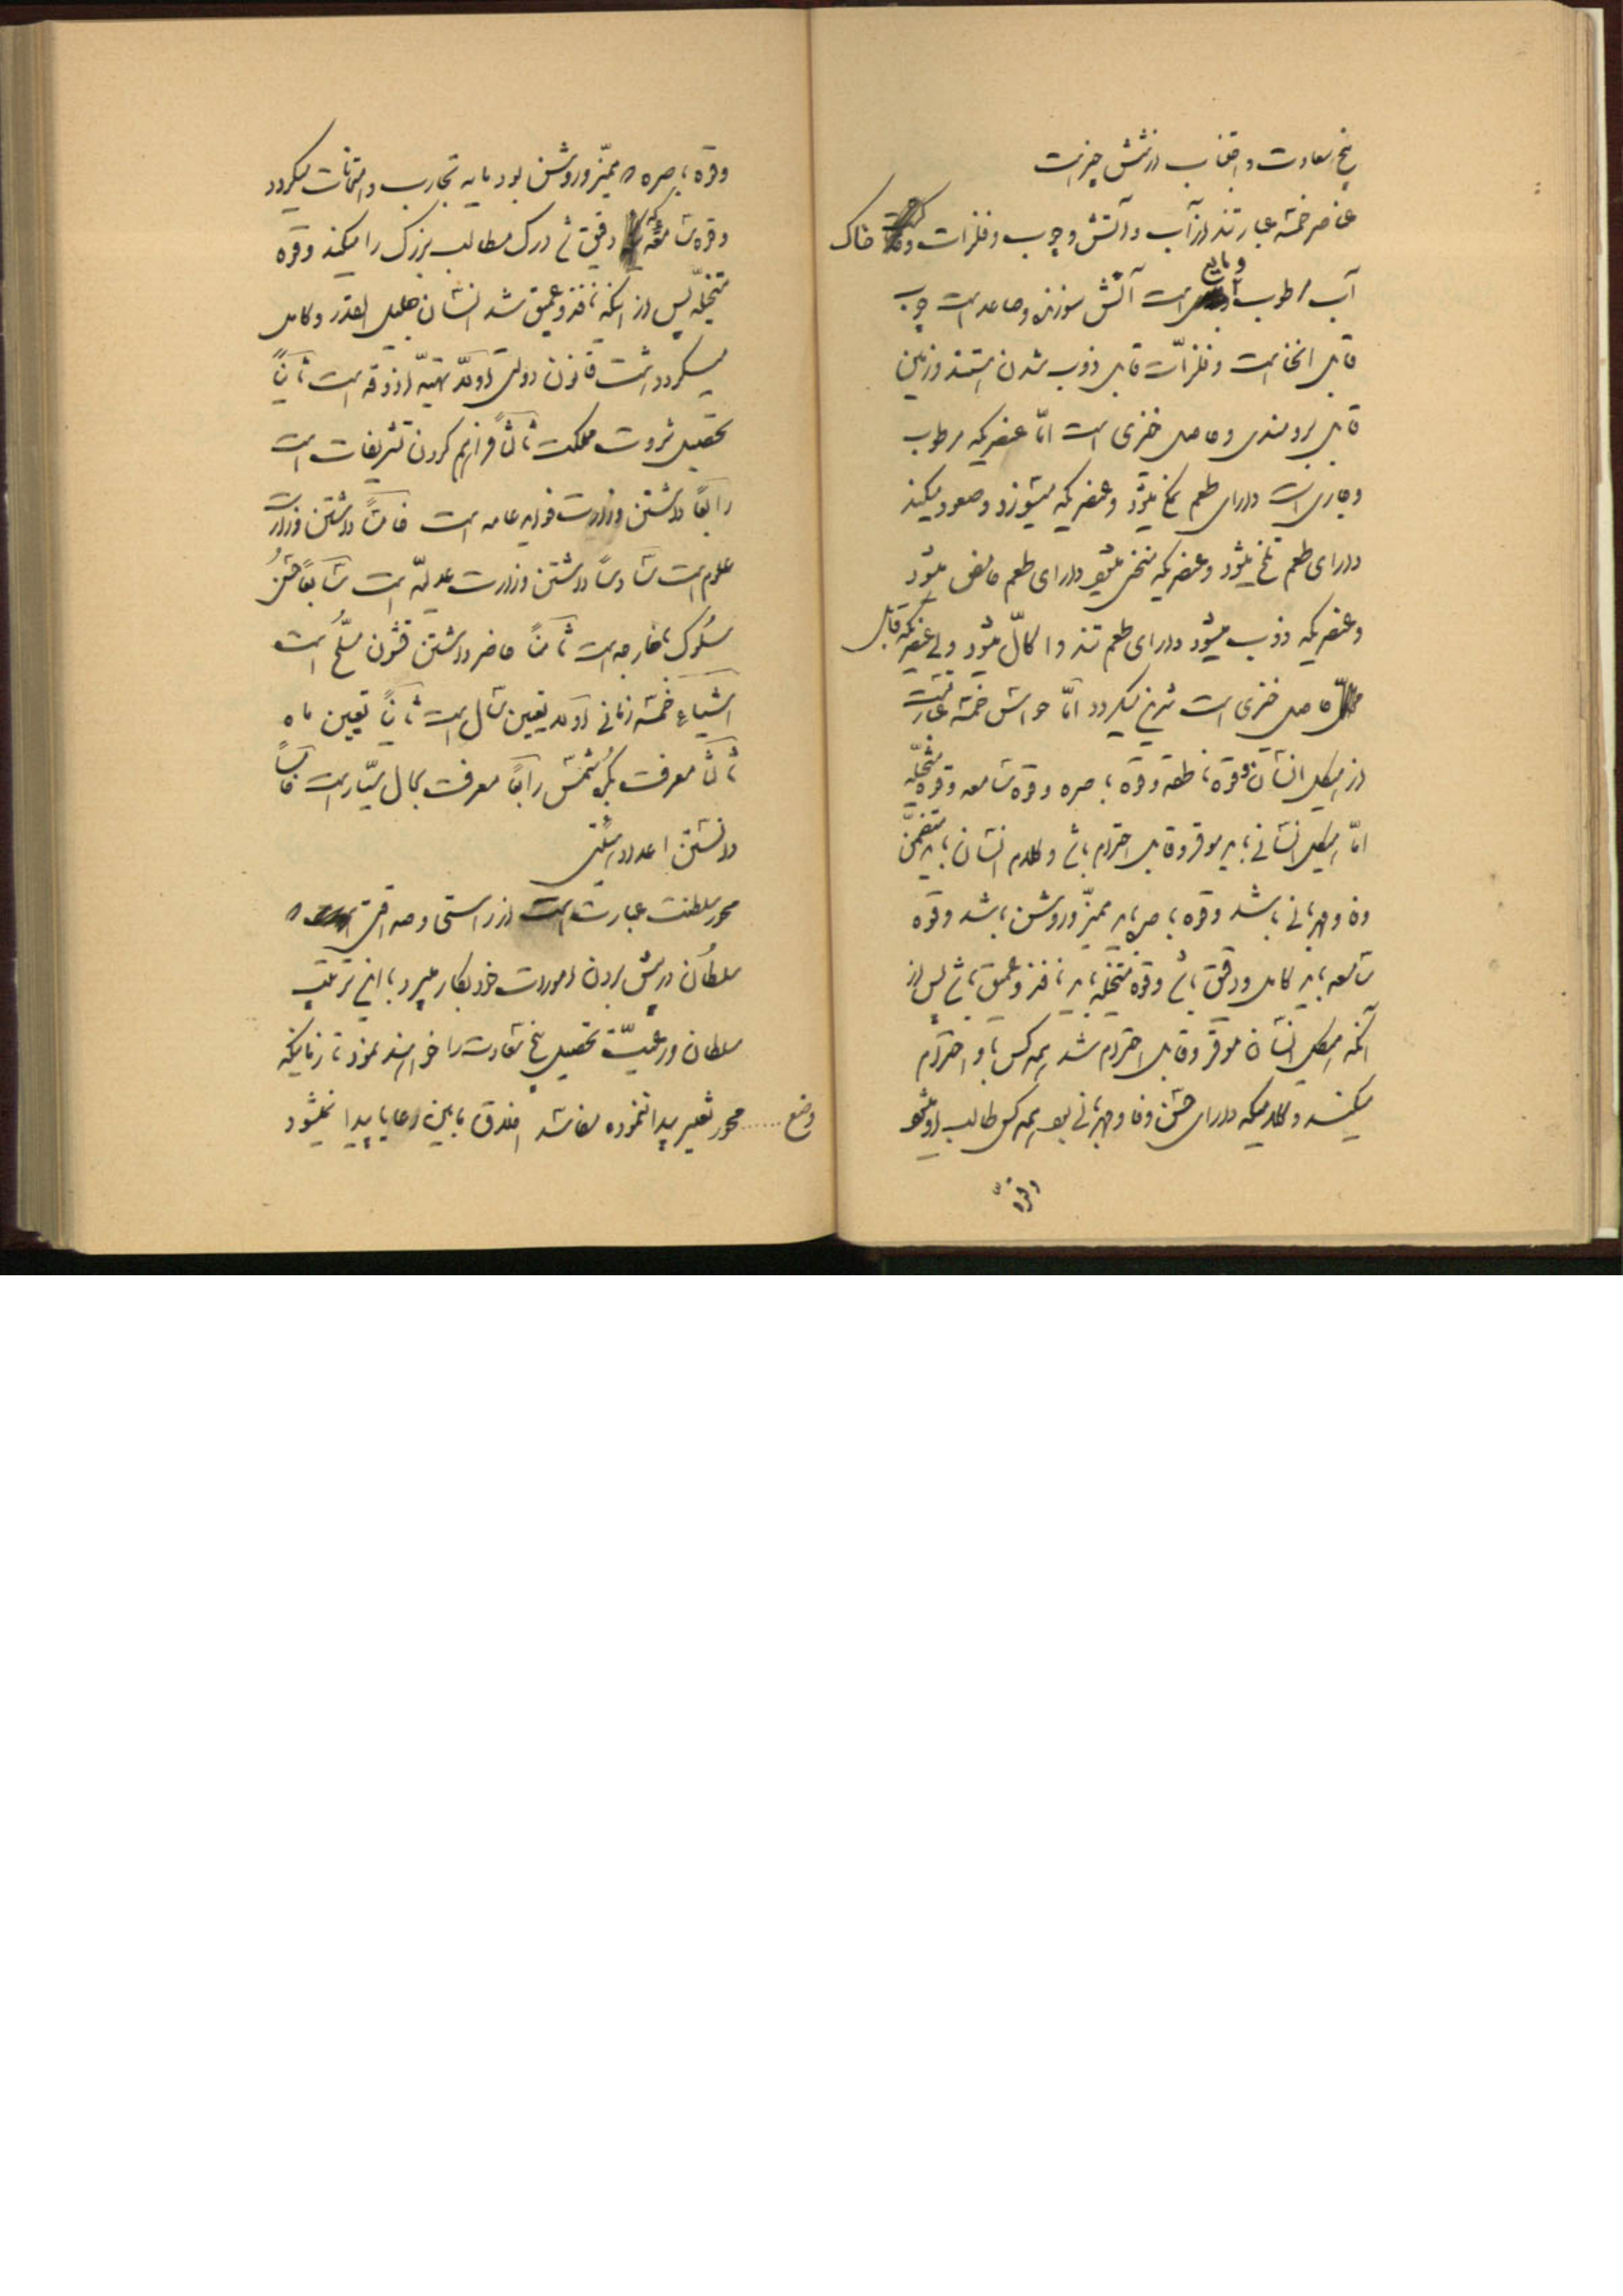 پنج سعادت و اجتناب از شش چیز است
عناصر خمسه عبارتند از آب و آتش و چوب و فلزات و خاک
آب مرطوب و مایع است آتش سوزنده و صاعد است چوب
قابل انحنا است و فلزّات قابل ذوب شدن هستند و زمین
قابل برومندی و حاصل خیزی است امّا عنصریکه مرطوب
و جاری است دارای طعم نمک میشود و عنصریکه میسوزد و صعود میکند
دارای طعم تلخ میشود و عنصریکه منحنی میشود دارای طعم حامض میشود
و عنصریکه ذوب میشود دارای طعم تند و اکّال میشود ولی عنصریکه قابل
حاصل خیزی است شیرین میگردد امّا حواس خمسه عبارتست
از هیکل انسان و قوه ناطقه و قوه باصره و قوه سامعه و قوه متخیّله
امّا هیکل انسانی باید موقر و قابل احترام باشد و کلام انسان باید متضمّن
وفا و مهربانی باشد و قوه باصره باید ممیّز و روشن باشد و قوه
سامعه باید کامل و دقیق باشد و قوه متخیّله باید نافذ و عمیق باشد پس از
آنکه هیکل انسان موقّر و قابل احترام شد همه کس باو احترام
میکنند و کلامیکه دارای حسن وفا و مهربانی بود همه کس طالب او میشود
و قوه
و قوه باصره ممیّز و روشن بود مایه تجارب و امتحانات میگردد
و قوه سامعه که دقیق شد درک مطالب بزرگ را میکند و قوه
متخیّله پس از اینکه نافذ و عمیق شد انسان جلیل القدر و کامل
میگردد هشت قانون دولتی اولاً تهیّه آذوقه است ثانیاً
تحصیل ثروت مملکت ثالثاً فراهم کردن تشریفات است
رابعاً داشتن وزارت فواید عامه است خامساً داشتن وزارت
علوم است سادساً داشتن وزارت عدلیّه است سابعاً حسن
سلوک بخارجه است ثامناً حاضر داشتن قشون مسلّح است
اشیاء خمسه زمانی اولاً تعیین سال است ثانیاً تعیین ماه
ثالثاً معرفت بکره شمس رابعاً معرفت بحال سیّارات خامساً
دانستن اعداد
محور سلطنت عبارت است از راستی و صداقتی
سلطان در پیش بردن امورات خود بکار میبرد باین ترتیب
سلطان و رعیّت تحصیل پنج سعادت را خواهند نمود تا زمانیکه
وضع ..... محور تغییر پیدا ننموده باشد نفاق مابین رعایا پیدا نمیشود